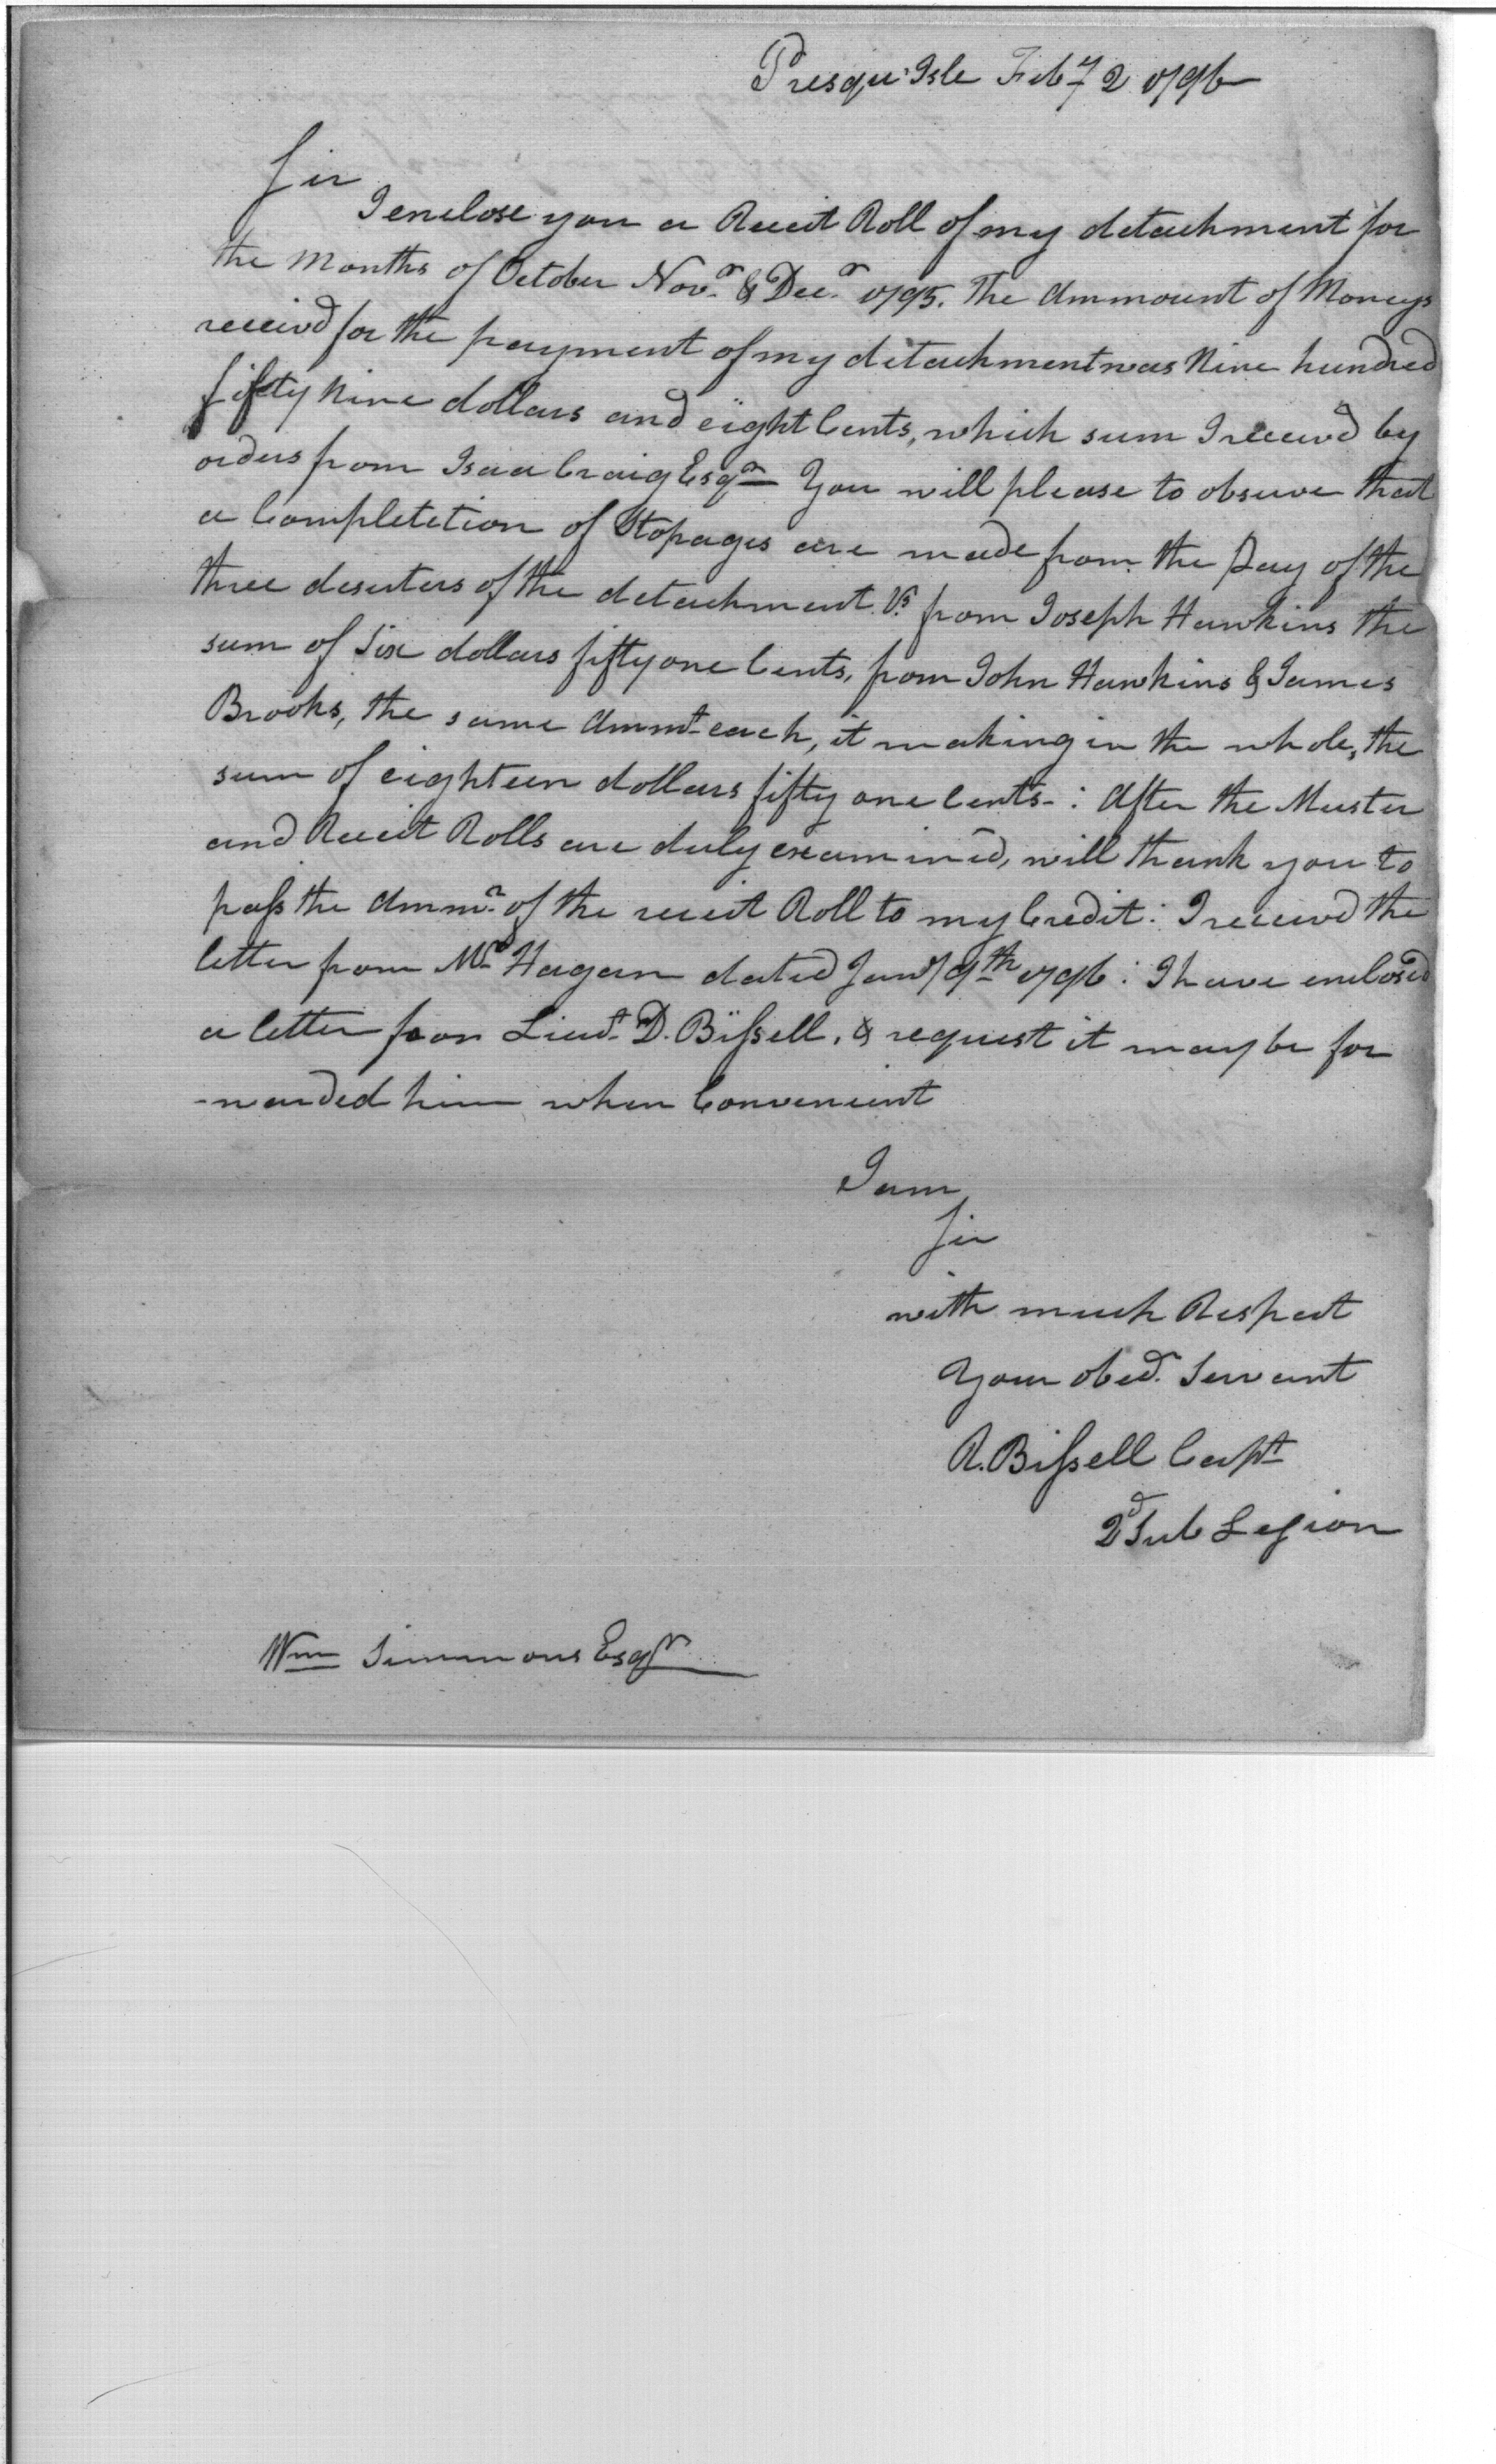 Presqu'Isle Feby 2 1796
Sir
I enclose you a Receit Roll of my detachment for
the Months of October Novr. & Decr. 1795. The Ammount of Moneys
receivd for the payment of my detachment was Nine hundred
fifty Nine dollars and eight Cents, which sum I receivd by
orders from Isaa Craig Esqr You will please to observe that
a Completetion of Stopages are made from the Pay of the
three deserters of the detachment. Vs. from Joseph Hawkins the
sum of Six dollars fifty one Cents, from John Hawkins & James
Brooks, the same Ammt. each, it making in the whole, the
sum of eighteen dollars fifty one Cents-: After the Muster
and Receit Rolls are duly examined, will thank you to
pass the Ammt. of the receit Roll to my Credit: I receivd the
letter from Mr. Hagan dated Jany 9th 1796: I have enclosed
a letter for Lieut. D. Bissell, & request it may be for
-warded him when Convenient
I am
Sir
with much Respect
Your obed. Servant
R. Bissell Capt
2d Sub Legion
Wm Simmons Esqr